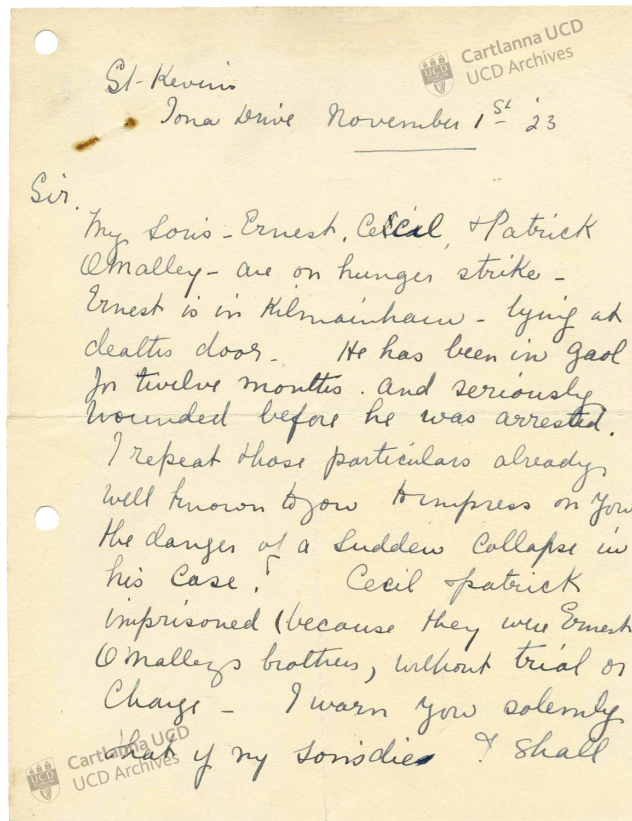 Cartlanna UCD
UCD Archives
St-Kevins
Iona Drive November 1st '23
Sir.
My sons - Ernest, Cecil, & Patrick
O'Malley - are on hunger strike -
Ernest is in Kilmainham - lying at
deaths door - He has been in gaol
for twelve months. and seriously
wounded before he was arrested.
I repeat those particulars already
well known to you to impress on you
the danger of a sudden collapse in
his case. Cecil & patrick
imprisoned (because they were Ernest
O'Malleys brothers, without trial or
Charge - I warn you solemnly
that if my sons die I shall
Cartlanna UCD
UCD Archives